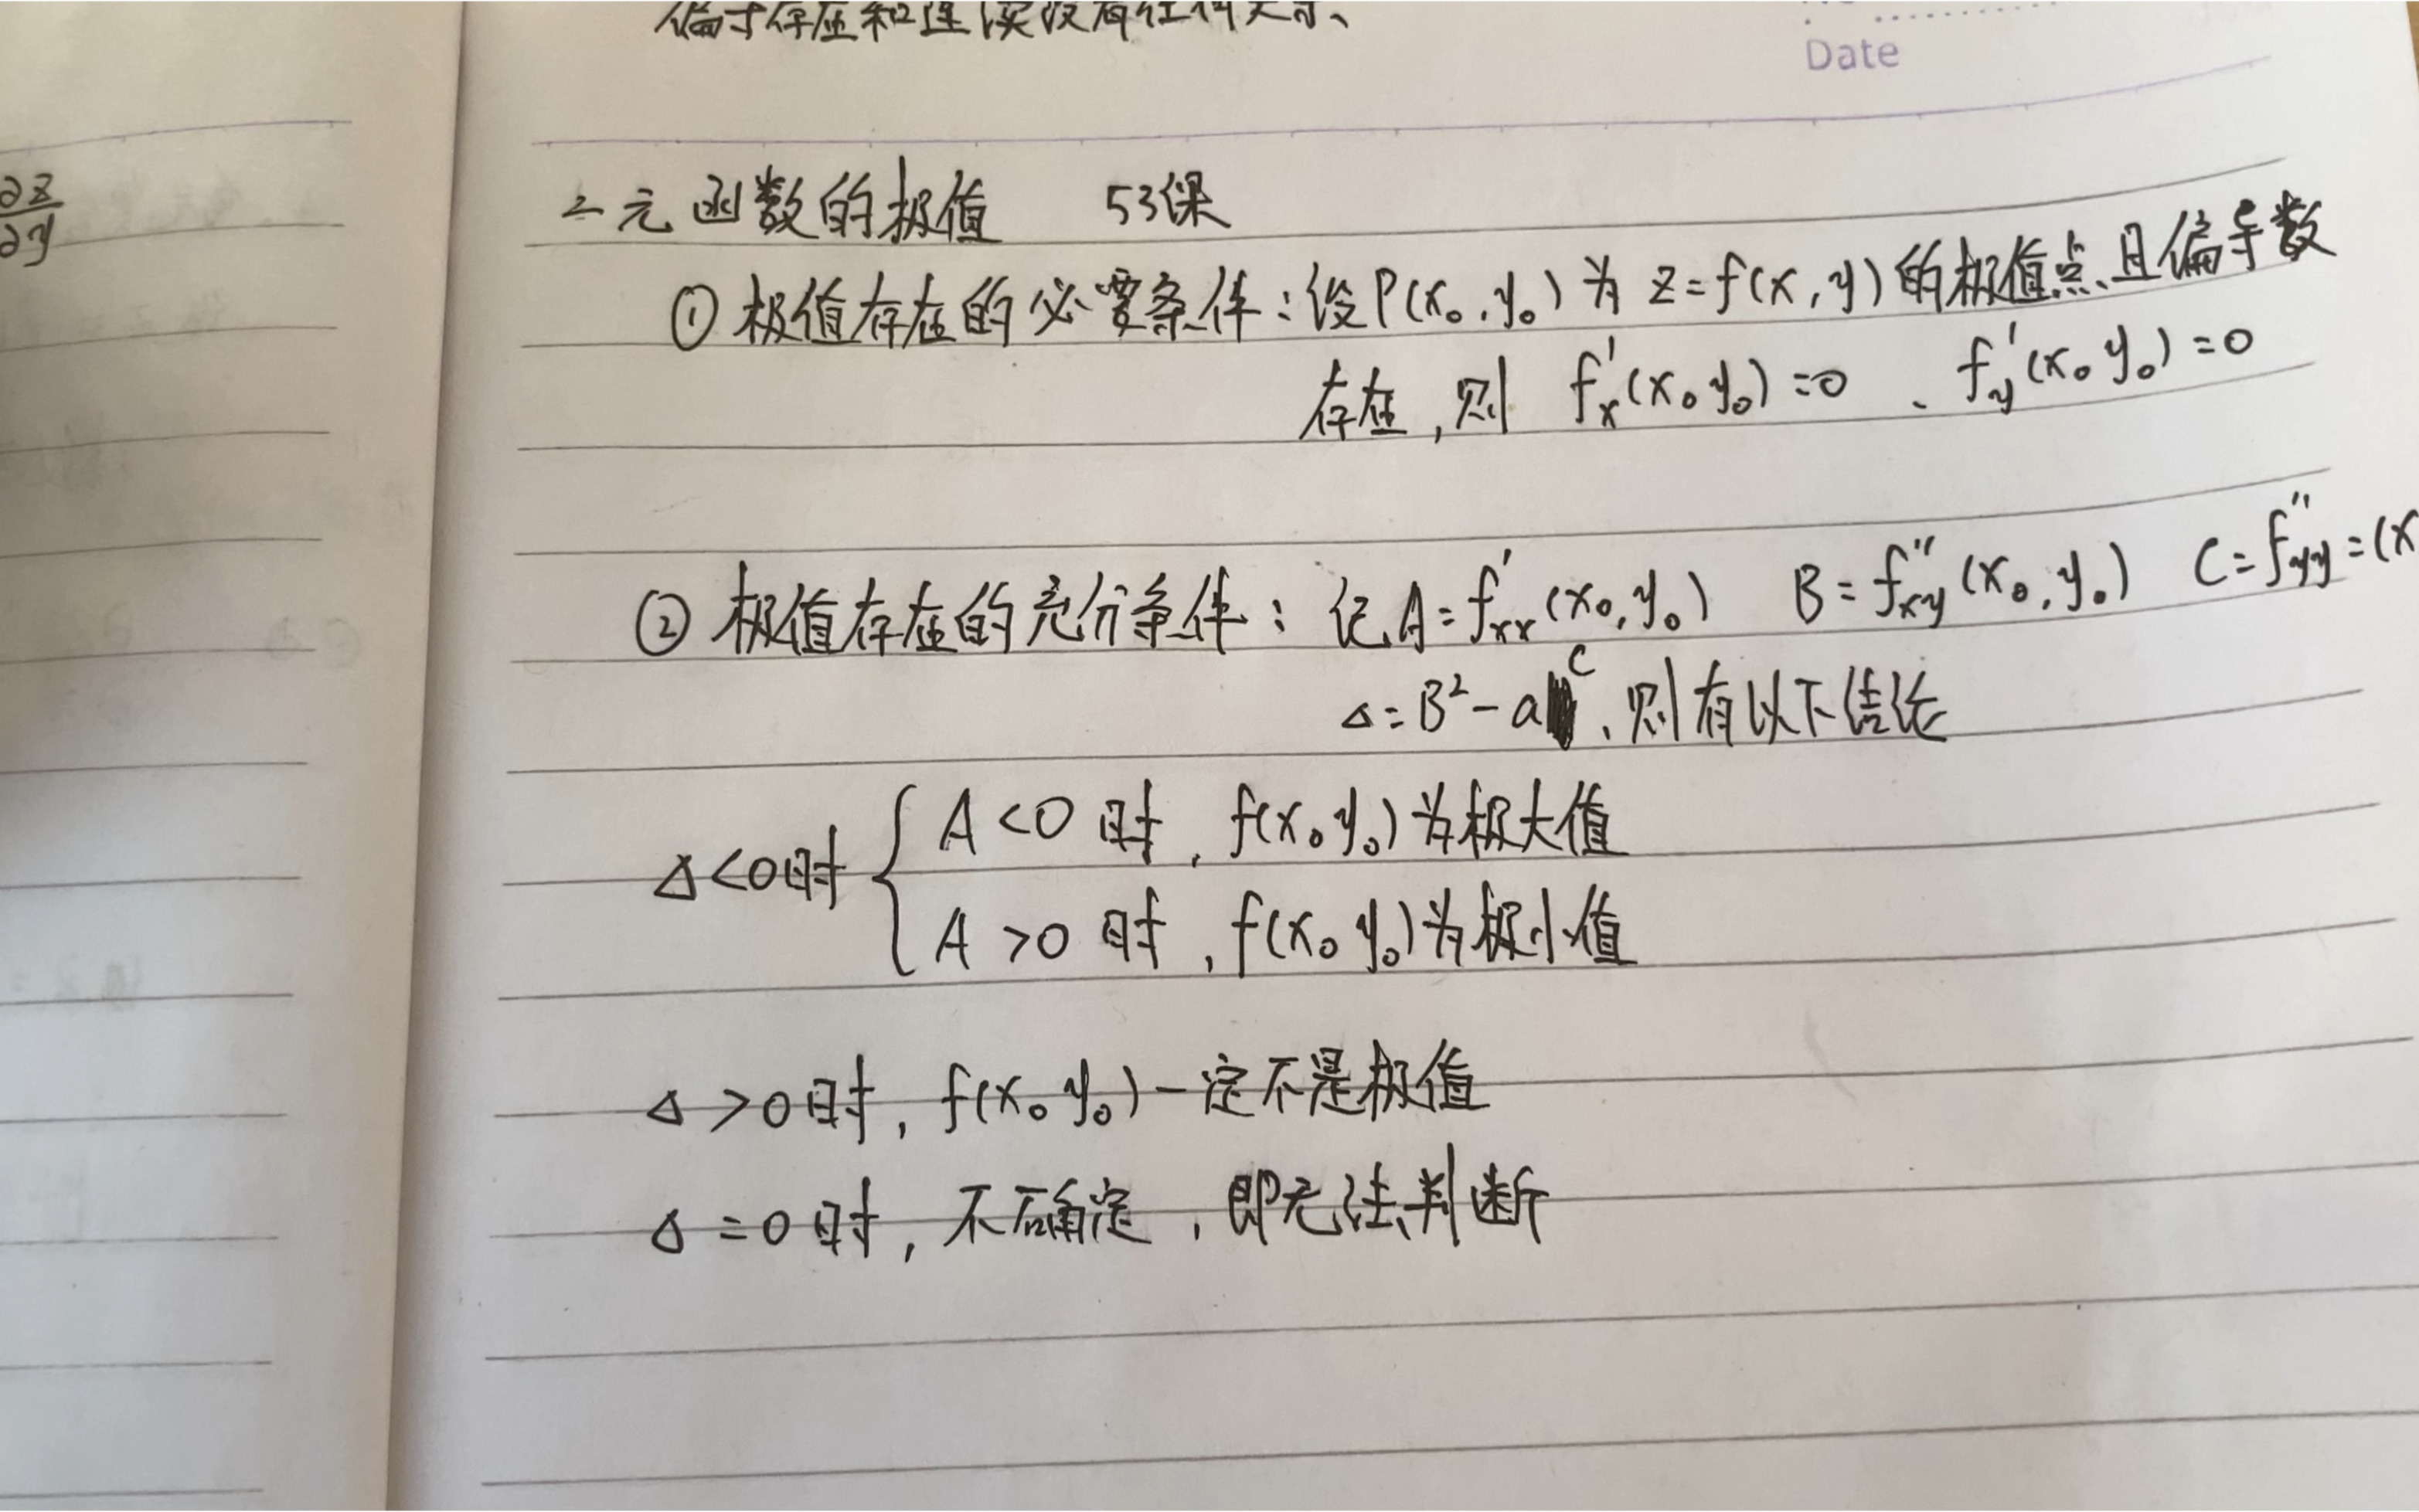 偏导存在和连续没有任何关系、
Date
∂z/∂y
二元函数的极值 53课
① 极值存在的必要条件：设P(x₀,y₀)为 z=f(x,y)的极值点、且偏导数
存在,则 fₓ'(x₀y₀)=0 、fᵧ'(x₀y₀)=0
② 极值存在的充分条件：记A=f'ₓₓ(x₀,y₀) B=f''ₓᵧ(x₀,y₀) C=f''ᵧᵧ=(x
△=B²-aC、则有以下结论
△<0时 { A<0时, f(x₀y₀)为极大值
A>0时, f(x₀y₀)为极小值
△>0时, f(x₀y₀)一定不是极值
△=0时, 不确定, 即无法判断